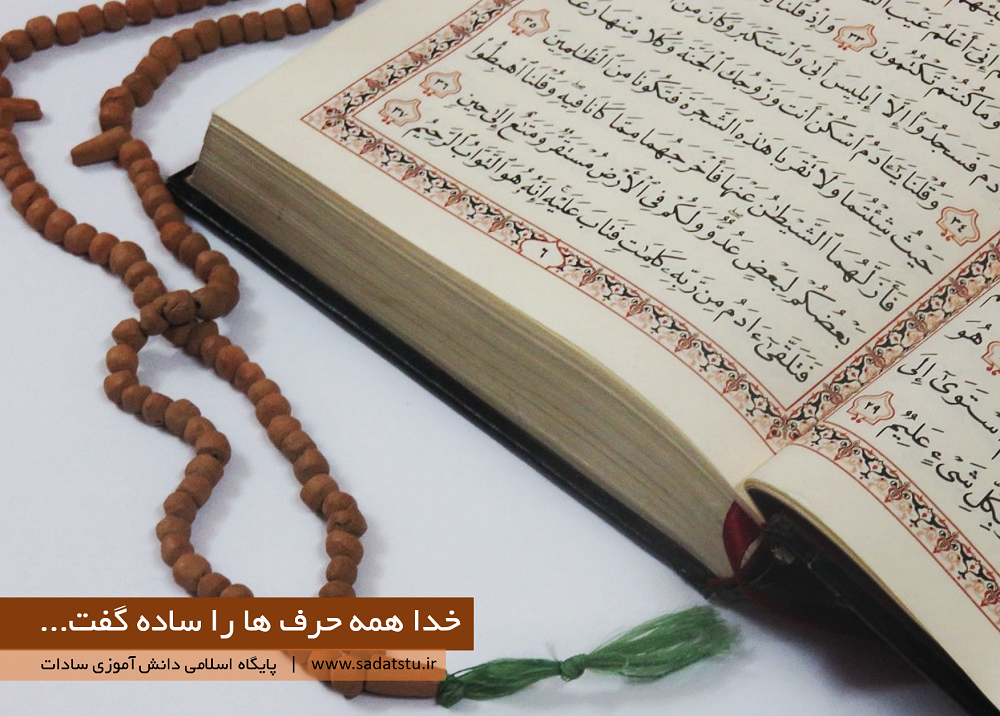 أَعْلَمُ غَيْبَ
وَمَا كُنتُمْ تَكْتُمُونَ ٣٣ وَإِذْ قُلْنَا
فَسَجَدُوٓا۟ إِلَّآ إِبْلِيسَ أَبَىٰ وَٱسْتَكْبَرَ وَكَانَ مِنَ
٣٤ وَقُلْنَا يَٰٓـَٔادَمُ ٱسْكُنْ أَنتَ وَزَوْجُكَ ٱلْجَنَّةَ وَكُلَا مِنْهَا رَغَدًا
حَيْثُ شِئْتُمَا وَلَا تَقْرَبَا هَٰذِهِ ٱلشَّجَرَةَ فَتَكُونَا مِنَ ٱلظَّٰلِمِينَ ٣٥
فَأَزَلَّهُمَا ٱلشَّيْطَٰنُ عَنْهَا فَأَخْرَجَهُمَا مِمَّا كَانَا فِيهِ وَقُلْنَا ٱهْبِطُوا۟
بَعْضُكُمْ لِبَعْضٍ عَدُوٌّ وَلَكُمْ فِى ٱلْأَرْضِ مُسْتَقَرٌّ وَمَتَٰعٌ إِلَىٰ حِينٍ ٣٦
فَتَلَقَّىٰٓ ءَادَمُ مِن رَّبِّهِۦ كَلِمَٰتٍ فَتَابَ عَلَيْهِ إِنَّهُۥ هُوَ ٱلتَّوَّابُ ٱلرَّحِيمُ ٣٧
٦
هُوَ
ٱسْتَوَىٰٓ إِلَى
بِكُلِّ شَىْءٍ عَلِيمٌ ٢٩
خدا همه حرف ها را ساده گفت...
پایگاه اسلامی دانش آموزی سادات | www.sadatstu.ir